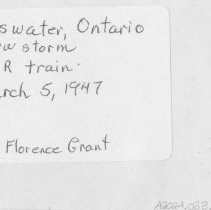 swater, Ontario
w storm
R train.
rch 5, 1947
Florence Grant
A2024.038.